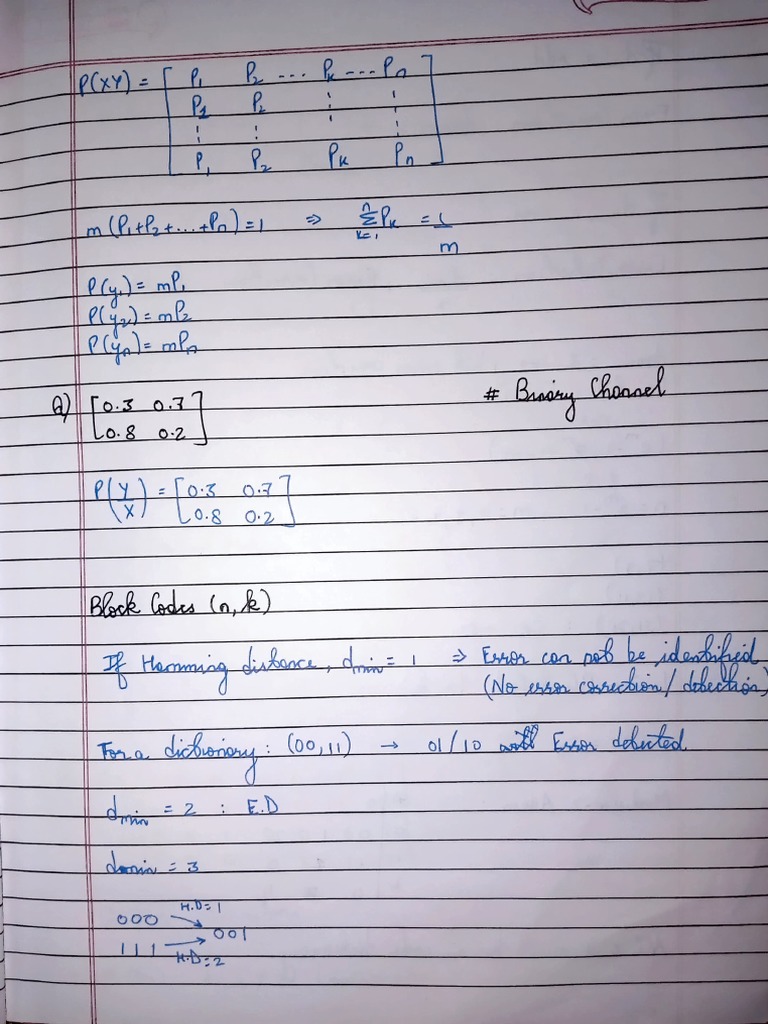 P(XY) = [ P₁ P₂ ... Pₖ ... Pₙ ]
P₁ P₂ ⋮ ⋮
⋮ ⋮ ⋮
P₁ P₂ Pₖ Pₙ
m(P₁+P₂+...+Pₙ)=1 ⇒ Σⁿₖ₌₁ Pₖ = 1/m
P(y₁) = mP₁
P(y₂) = mP₂
P(yₙ) = mPₙ
Q) [0.3 0.7 # Binary Channel
0.8 0.2]
P(Y/X) = [0.3 0.7
0.8 0.2]
Block Codes (n,k)
If Hamming distance, dmin = 1 ⇒ Error can not be identified
(No error correction / detection)
For a dictionary : (00,11) → 01/10 Error detected.
dmin = 2 : E.D
dmin = 3
H.D=1
000 → 001
111 →
H.D=2